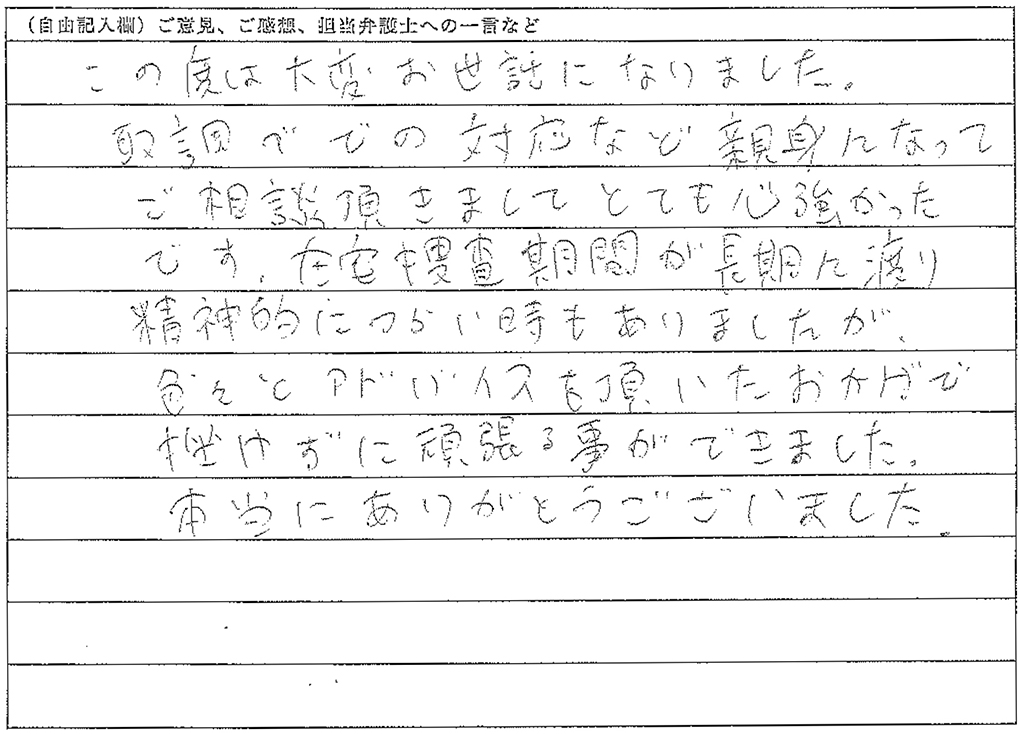 (自由記入欄) ご意見、ご感想、担当弁護士への一言など
この度は大変お世話になりました。
取調べでの対応など親身になって
ご相談頂きましてとても心強かった
です。在宅捜査期間が長期に渡り
精神的につらい時もありましたが、
色々とアドバイスを頂いたおかげで
挫けずに頑張る事ができました。
本当にありがとうございました.